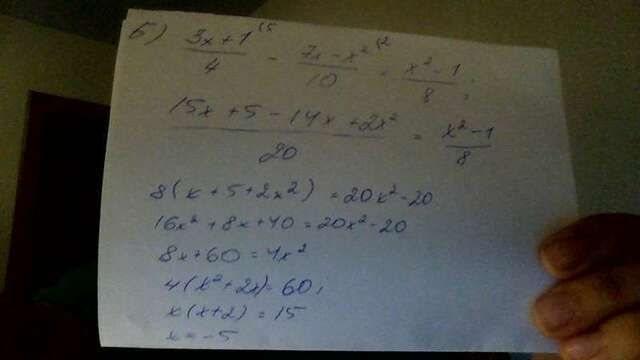 б) (3x+1)/4 ⁽⁵ - (7x-x²)/10 ⁽² = (x²-1)/8 ;
(15x+5-14x+2x²)/20 = (x²-1)/8
8(x+5+2x²) = 20x²-20
16x²+8x+40 = 20x²-20
8x+60 = 4x²
4(x²+2x) = 60;
x(x+2) = 15
x = -5